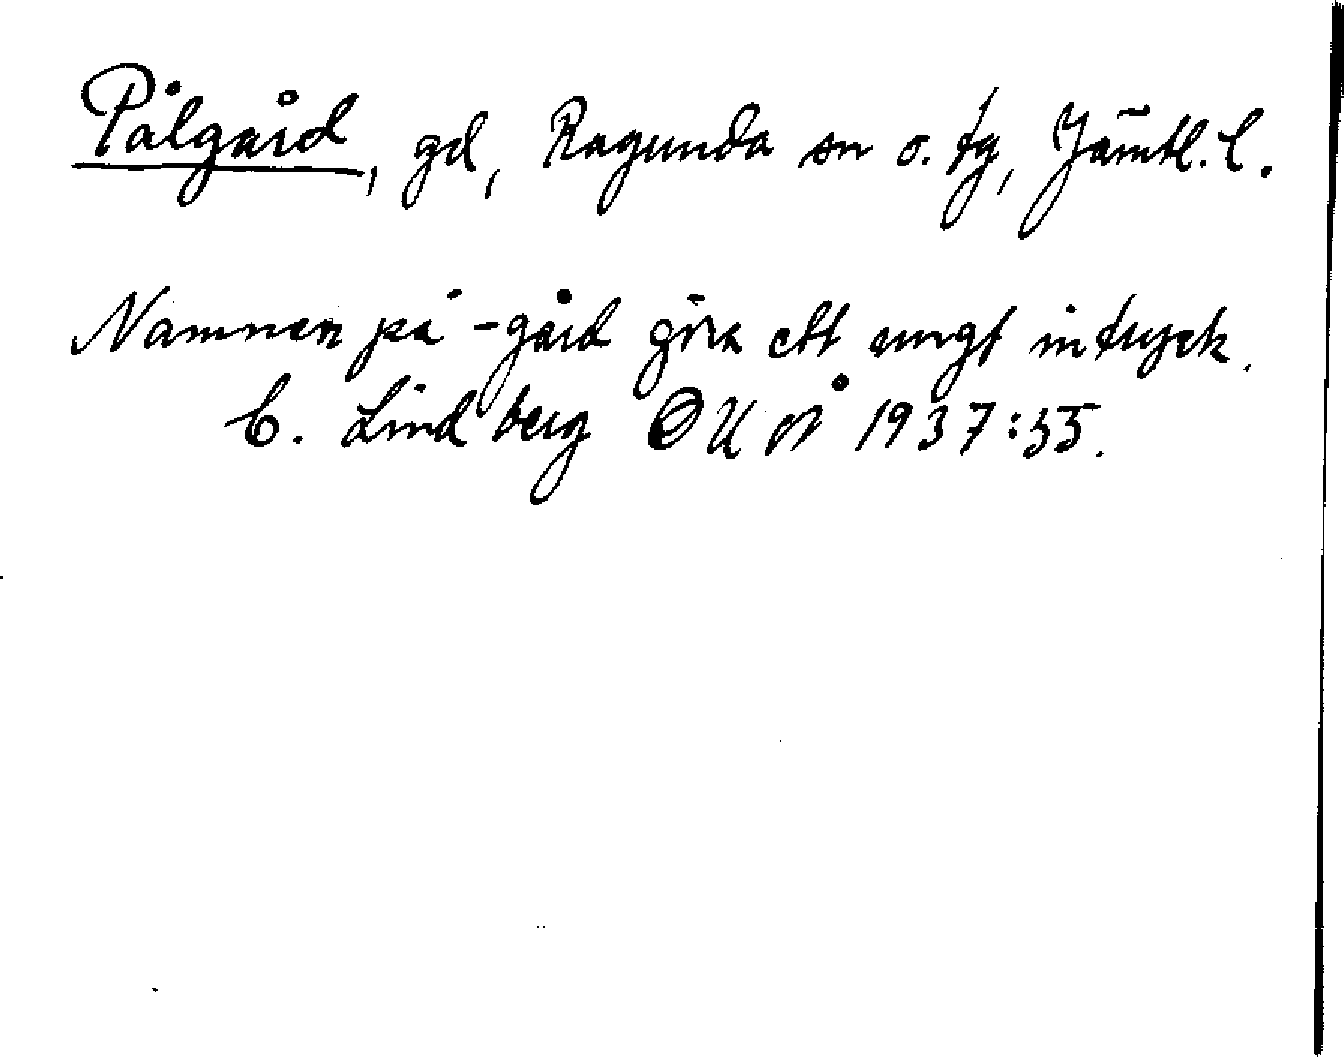 Pålgård, gd, Ragunda sn o. tg, Jämtl. l.
Namnen på -gård göra ett ungt intryck.
C. Lindberg OUoÅ 1937:35.